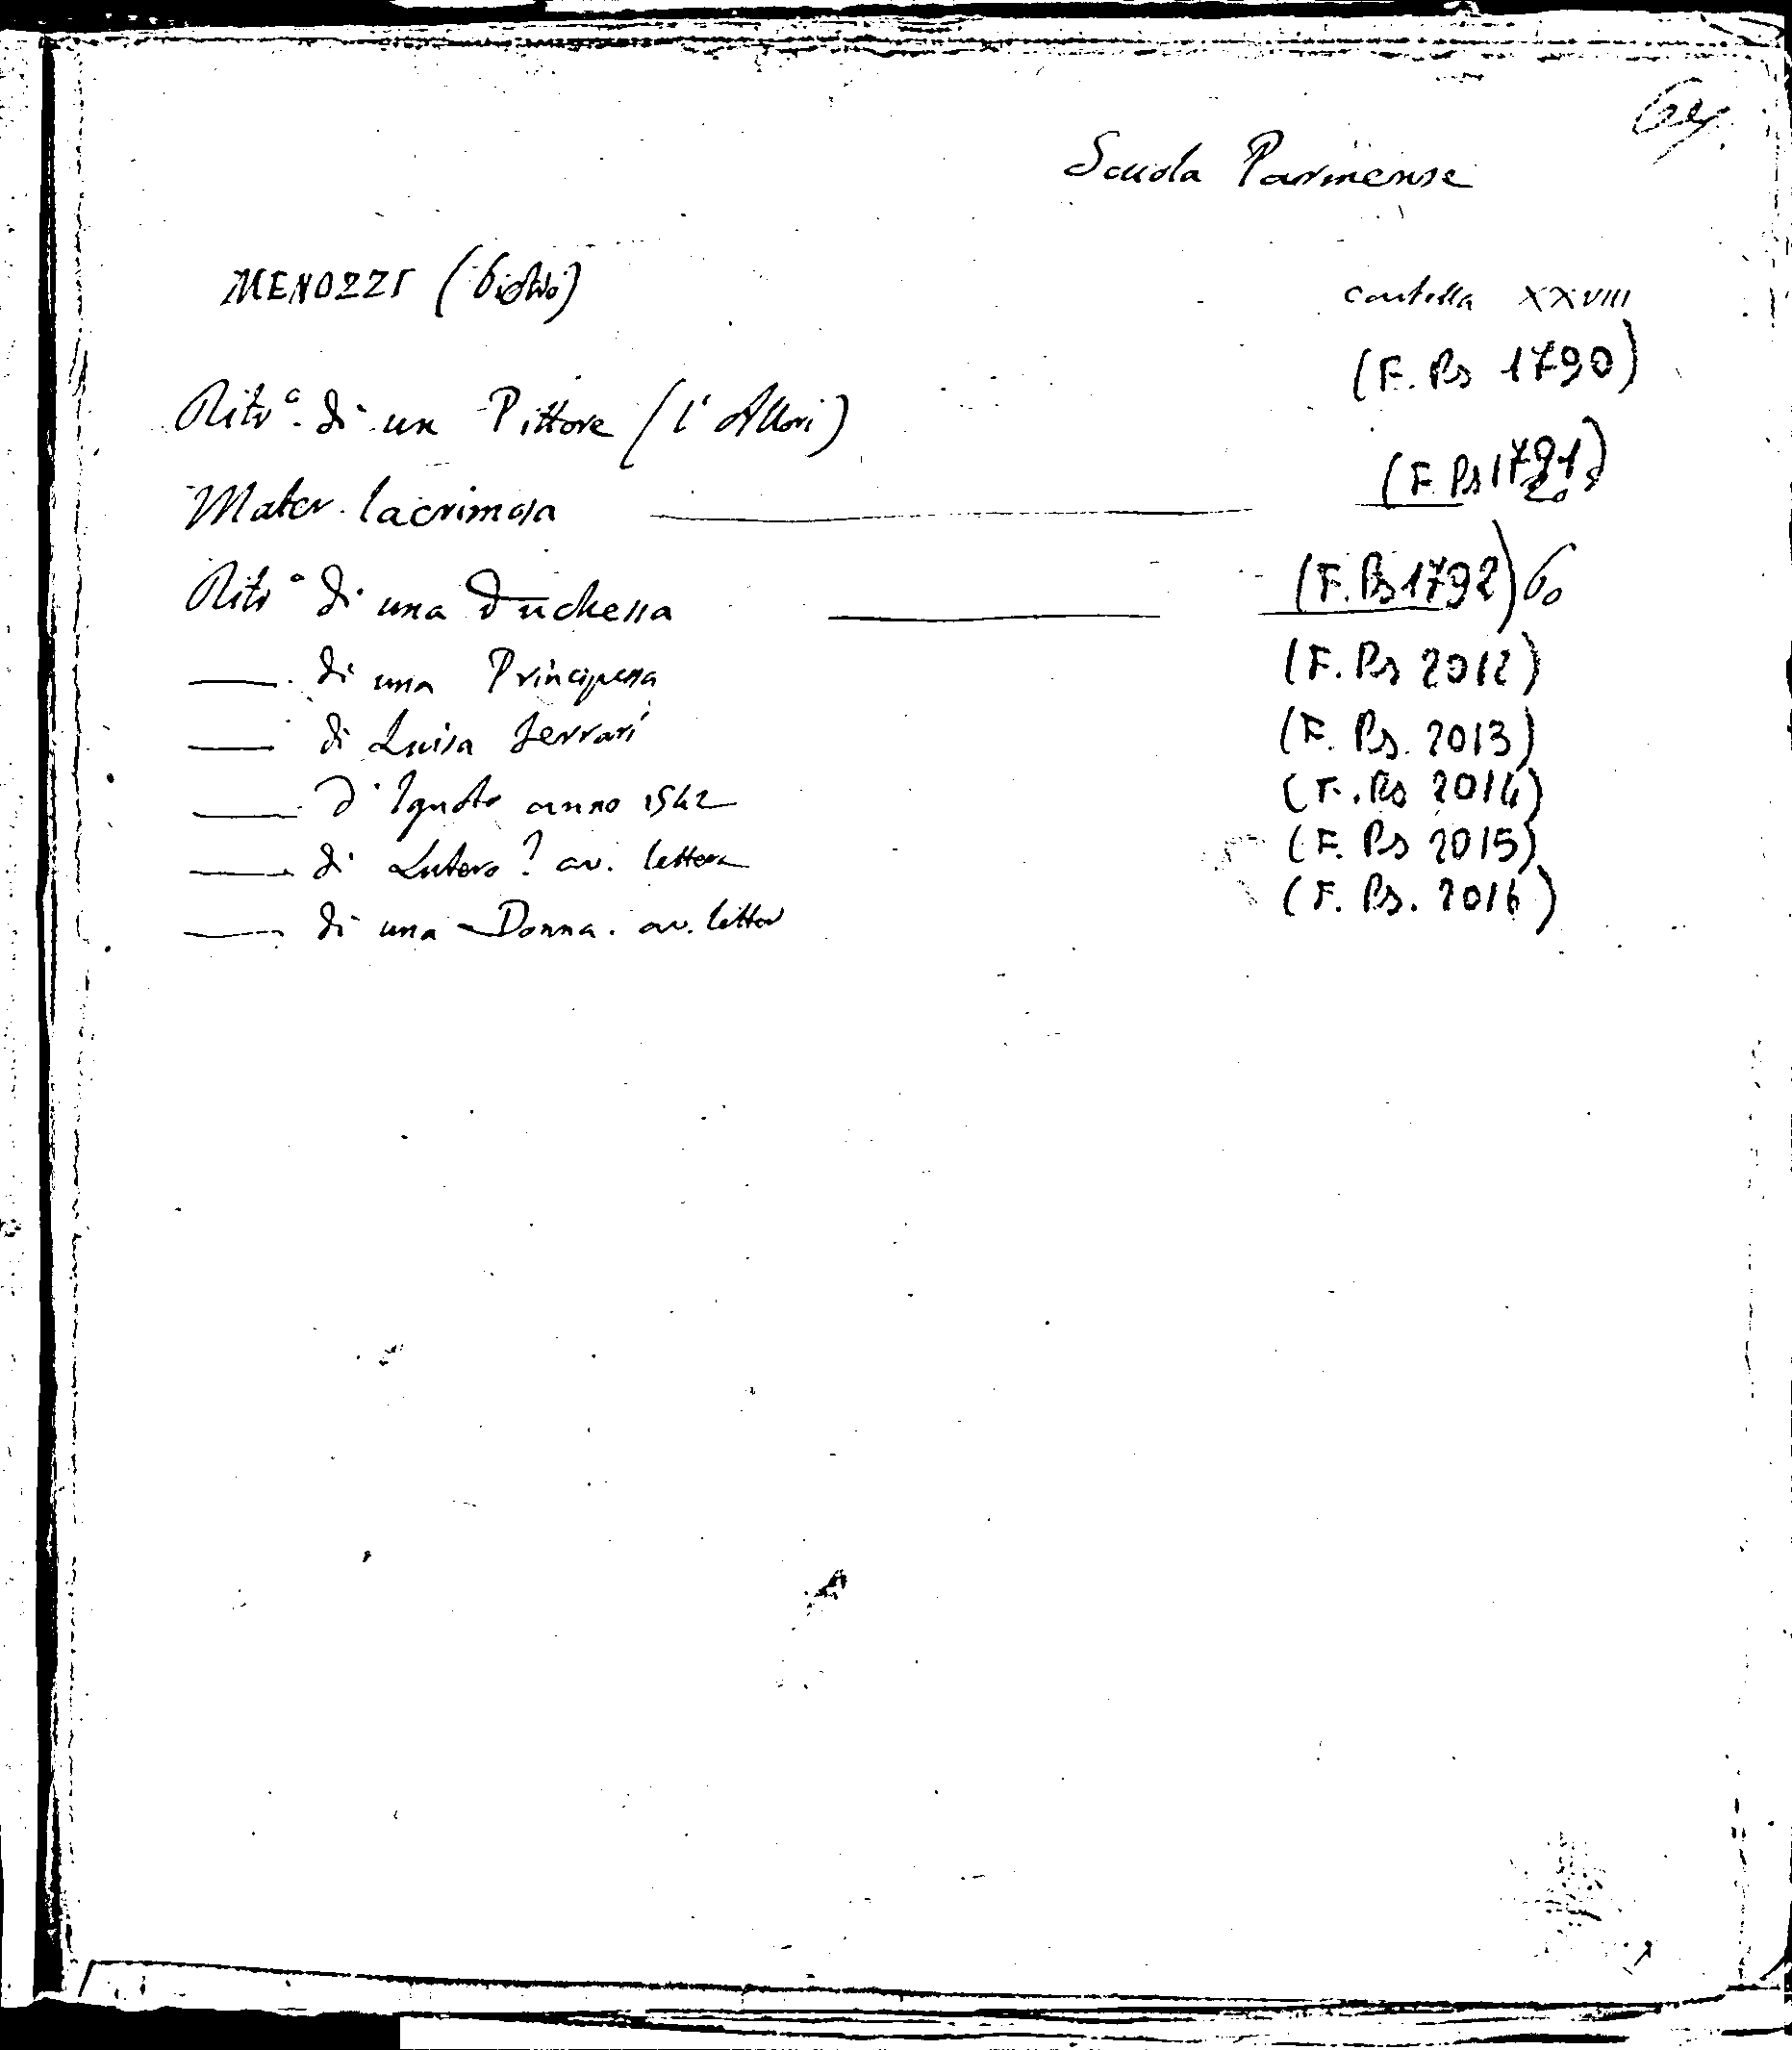 Scuola Parmense
MENOZZI (Pietro)
cartella XXVIII
(F. Ps 1790)
Ritrº. di un Pittore (l'Allori)
Mater lacrimosa (F. Ps 1791)
Ritrº di una Duchessa (F. Ps 1792) 60
di una Principessa (F. Ps 2012)
di Luisa Ferrari (F. Ps. 2013)
d'Ignoto anno 1542 (F. Ps 2014)
di Lutero? av. lettera (F. Ps 2015)
di una Donna. av. letter (F. Ps. 2016)